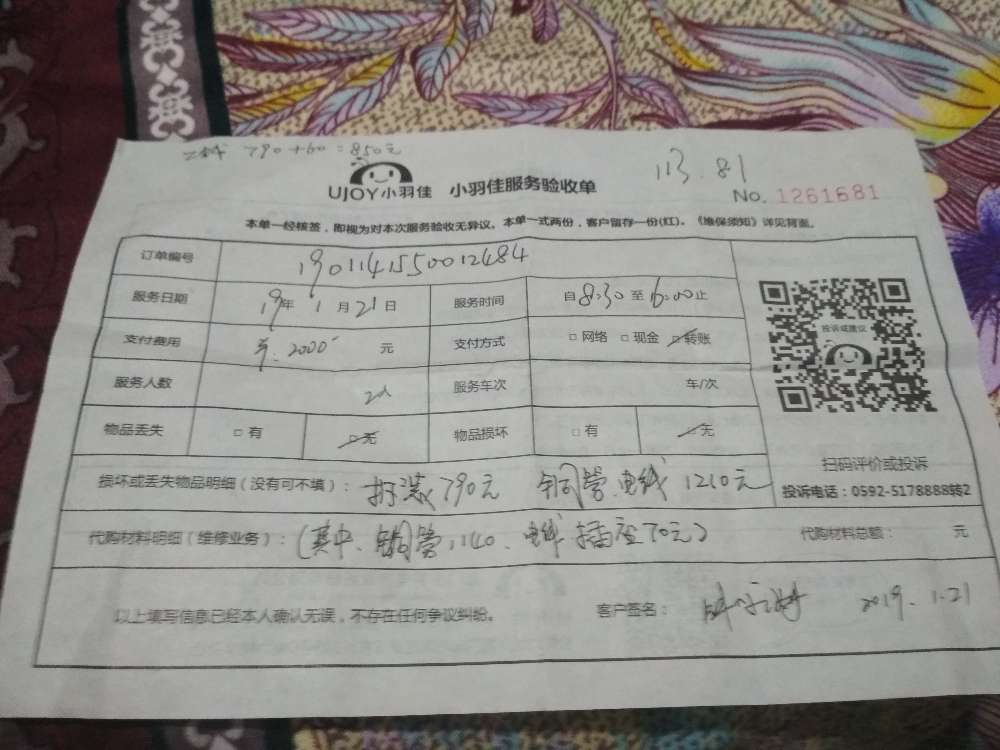 790+60=850元
113.81
UJOY小羽佳 小羽佳服务验收单
No. 1261681
本单一经核签，即视为对本次服务验收无异议。本单一式两份，客户留存一份(红)。《维保须知》详见背面。
订单编号 1901141550012484
服务日期 19年1月21日 服务时间 自8:30至16:00止
支付费用 ￥.2000 元 支付方式 □网络 □现金 □转账
服务人数 2人 服务车次 车/次
物品丢失 □有 □无 物品损坏 □有 □无
投诉或建议
扫码评价或投诉
投诉电话：0592-5178888转2
损坏或丢失物品明细（没有可不填）： 拆装790元 铜管、电线1210元
代购材料明细（维修业务）：(其中、铜管1140、电线插座70元) 代购材料总额： 元
以上填写信息已经本人确认无误，不存在任何争议纠纷。 客户签名： 2019.1.21